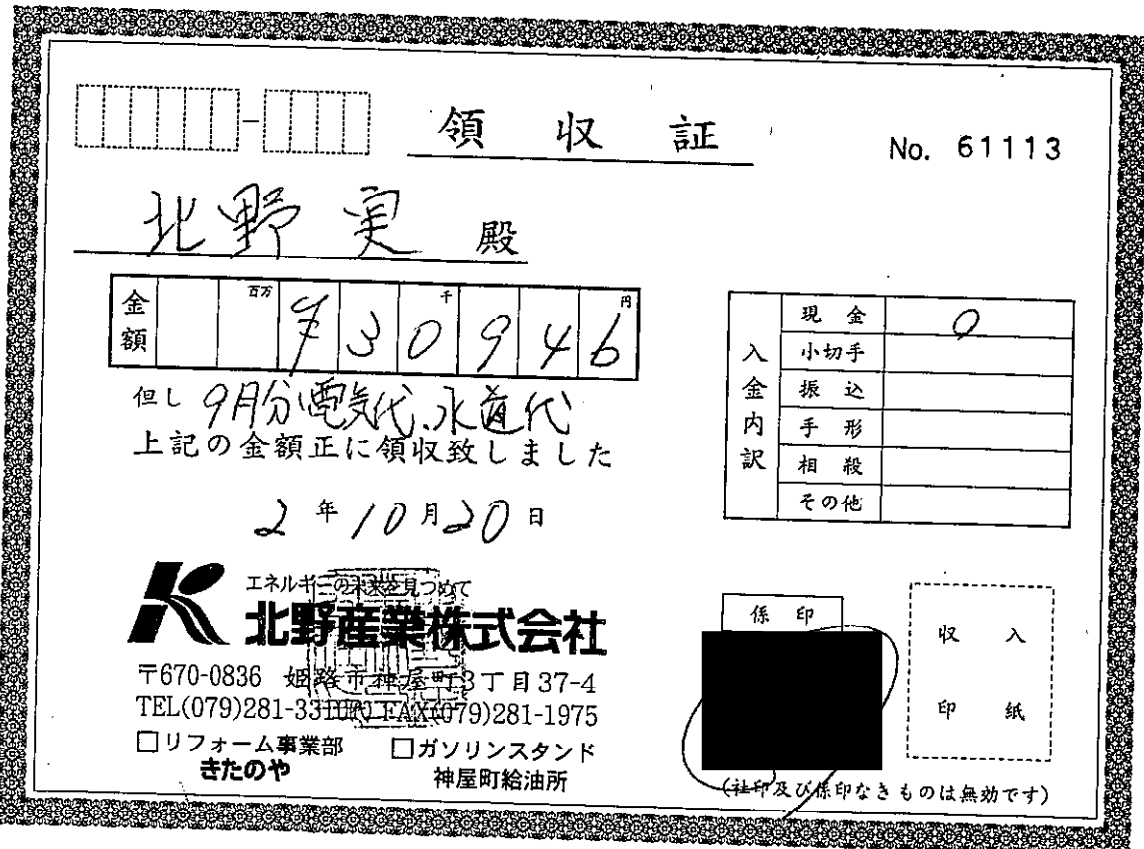 領 収 証
No. 61113
北野 実 殿
金額 百万 千 円
¥30946
但し 9月分電気代、水道代
上記の金額正に領収致しました
2年10月20日
入金内訳
現金 0
小切手
振込
手形
相殺
その他
エネルギーの未来を見つめて
北野産業株式会社
〒670-0836 姫路市神屋町3丁目37-4
TEL(079)281-33 FAX(079)281-1975
□リフォーム事業部 □ガソリンスタンド
きたのや 神屋町給油所
係印
収入
印紙
(社印及び係印なきものは無効です)